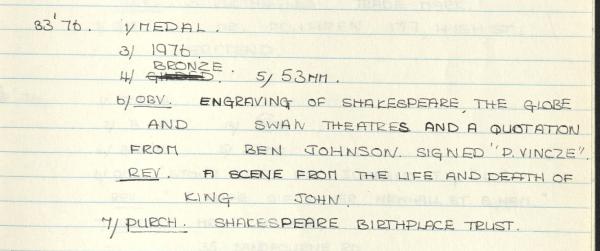 33'76. 1/ MEDAL.
3/ 1976.
BRONZE
4/ GILDED. 5/ 53MM.
6/ OBV. ENGRAVING OF SHAKESPEARE, THE GLOBE
AND SWAN THEATRES AND A QUOTATION
FROM BEN JOHNSON. SIGNED "P. VINCZE".
REV. A SCENE FROM THE LIFE AND DEATH OF
KING JOHN.
7/ PURCH. SHAKESPEARE BIRTHPLACE TRUST.